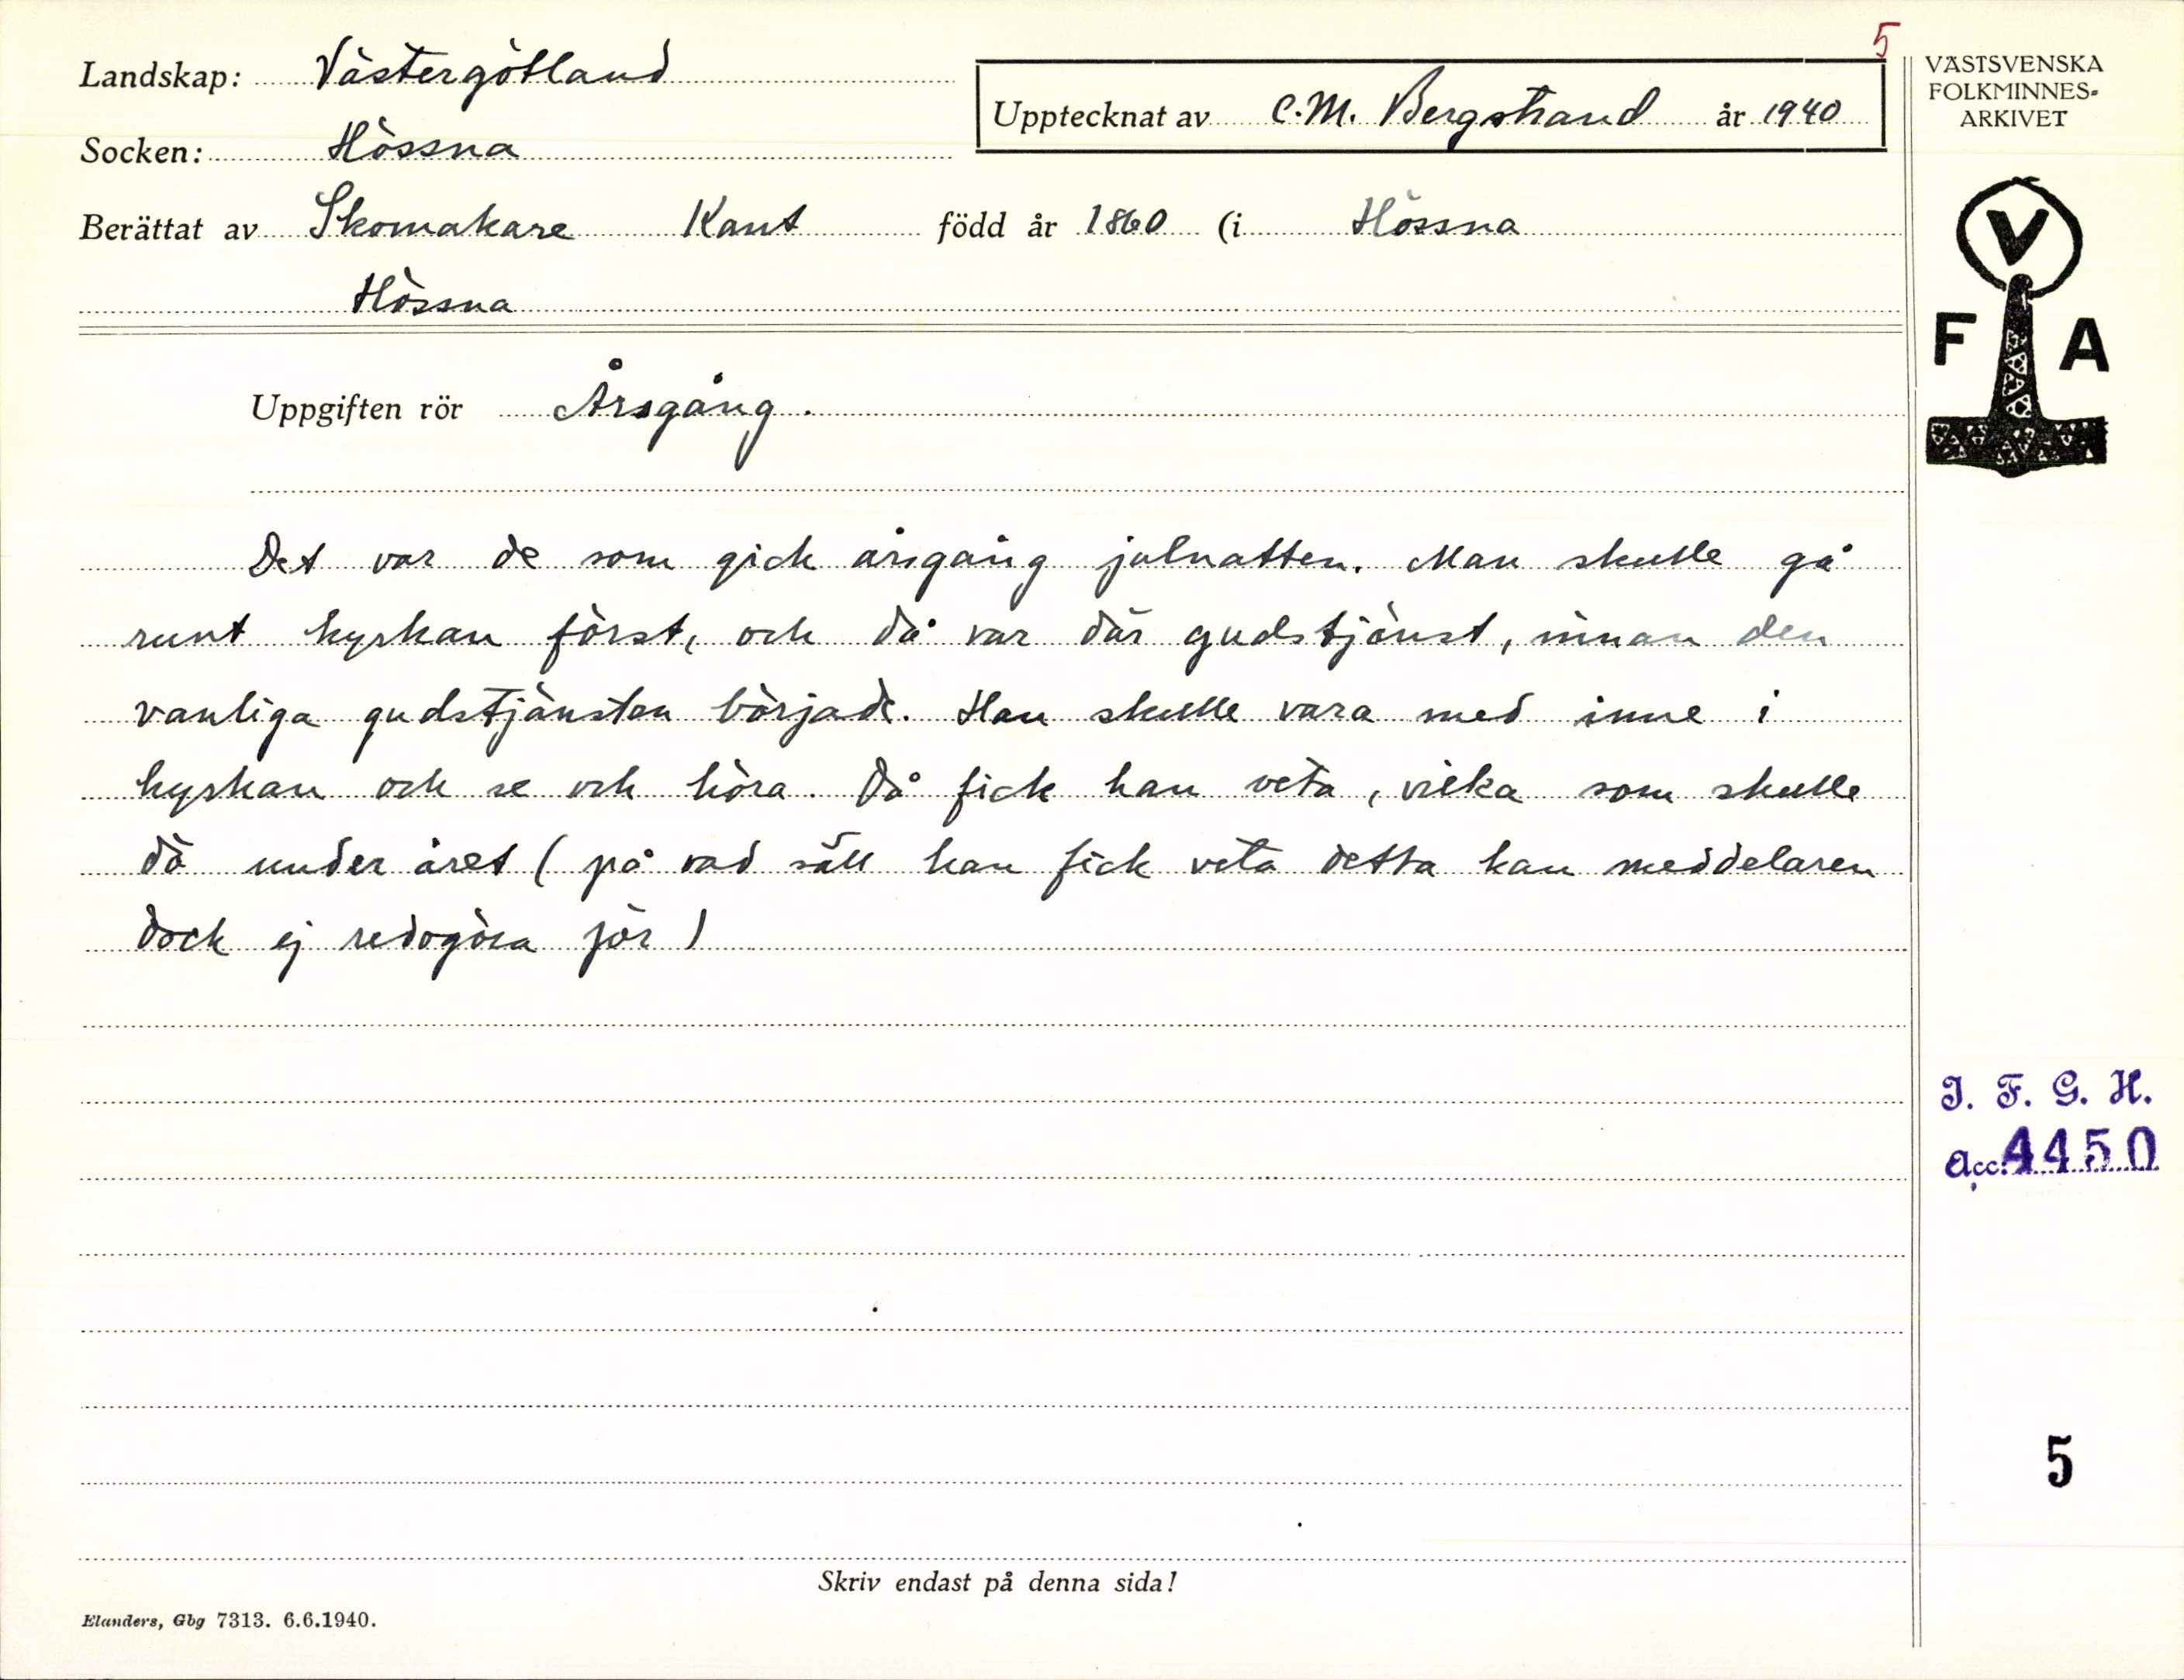 5
Landskap: Västergötland
Upptecknat av C.M. Bergstrand år 1940
VÄSTSVENSKA
FOLKMINNES-
ARKIVET
Socken: Hössna
Berättat av Skomakare Kant född år 1860 (i Hössna
Hössna
V
F A
Uppgiften rör Årsgång.
Det var de som gick årsgång julnatten. Man skulle gå
runt kyrkan först, och då var där gudstjänst, innan den
vanliga gudstjänsten började. Han skulle vara med inne i
kyrkan och se och höra. Då fick han veta, vilka som skulle
dö under året (på vad sätt han fick veta detta kan meddelaren
dock ej redogöra för)
I. F. G. H.
Acc. 4450
5
Skriv endast på denna sida!
Elanders, Gbg 7313. 6.6.1940.